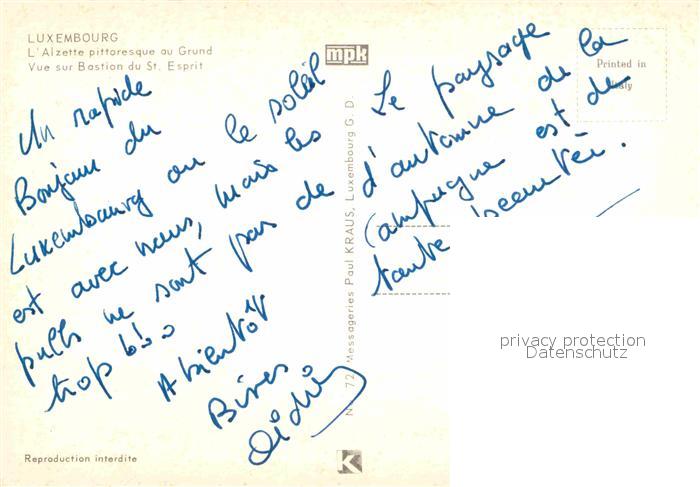 LUXEMBOURG
L'Alzette pittoresque au Grund
Vue sur Bastion du St. Esprit
mpk
Printed in
Italy
Un rapide
Bonjour du
Luxembourg où le soleil
est avec nous, mais les
pulls ne sont pas de
trop !!!
A bientôt
Bises
Le paysage
d'automne de la
campagne est de
toute beauté.
No 72 Messageries Paul KRAUS, Luxembourg G. D
privacy protection
Datenschutz
Reproduction interdite
K